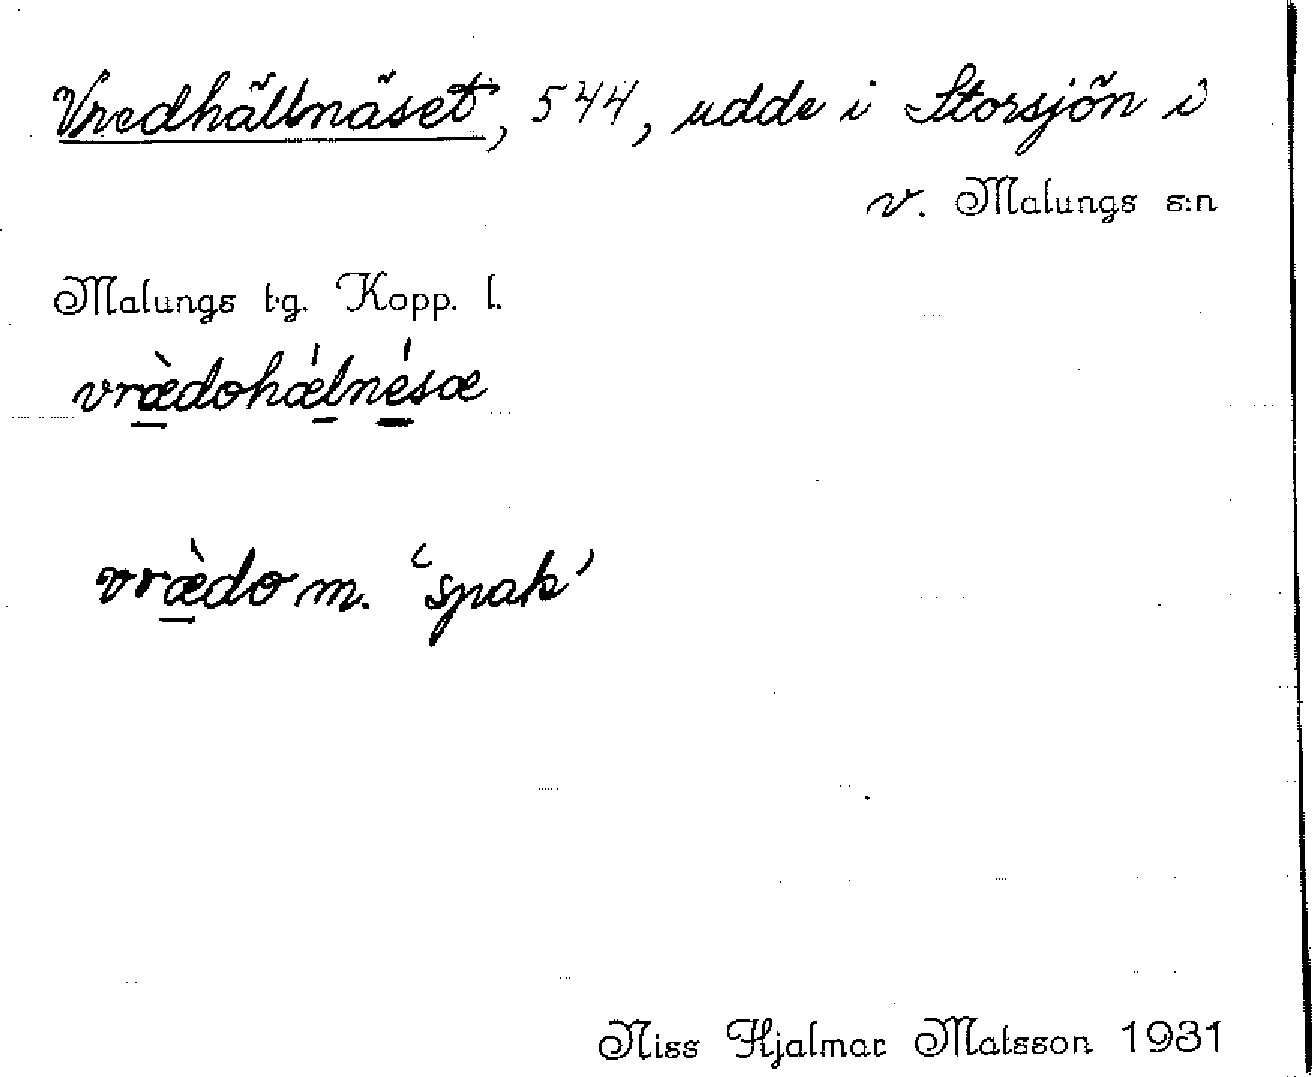 Vredhällnäset, 544, udde i Storsjön i
v. Malungs s:n
Malungs tg. Kopp. l.
vræ̀dohǽlnésæ
vræ̀do m. ‘spak’
Niss Hjalmar Matsson 1931